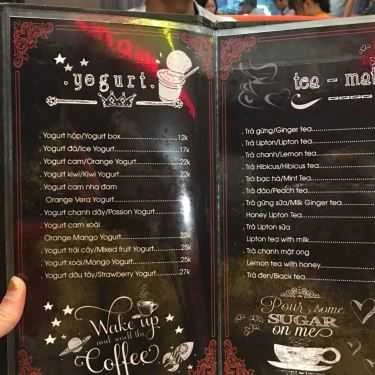 .yogurt.
Yogurt hộp/Yogurt box 12k
Yogurt đá/Ice Yogurt 17k
Yogurt cam/Orange Yogurt 22k
Yogurt kiwi/Kiwi Yogurt 22k
Yogurt cam nha đam
Orange Vera Yogurt 25k
Yogurt chanh dây/Passion Yogurt 22k
Yogurt cam xoài
Orange Mango Yogurt 25k
Yogurt trái cây/Mixed fruit Yogurt 25k
Yogurt xoài/Mango Yogurt 25k
Yogurt dâu tây/Strawberry Yogurt 27k
Wake up
and smell the
Coffee
tea - mat
. Trà gừng/Ginger tea
. Trà Lipton/Lipton tea
. Trà chanh/Lemon tea
. Trà Hibicus/Hibicus tea
. Trà bạc hà/Mint Tea
. Trà đào/Peach tea
. Trà gừng sữa/Milk Ginger tea
Honey Lipton Tea
. Trà Lipton sữa
Lipton tea with milk
. Trà chanh mật ong
Lemon tea with honey
. Trà đen/Black tea
Pour some
SUGAR
on me